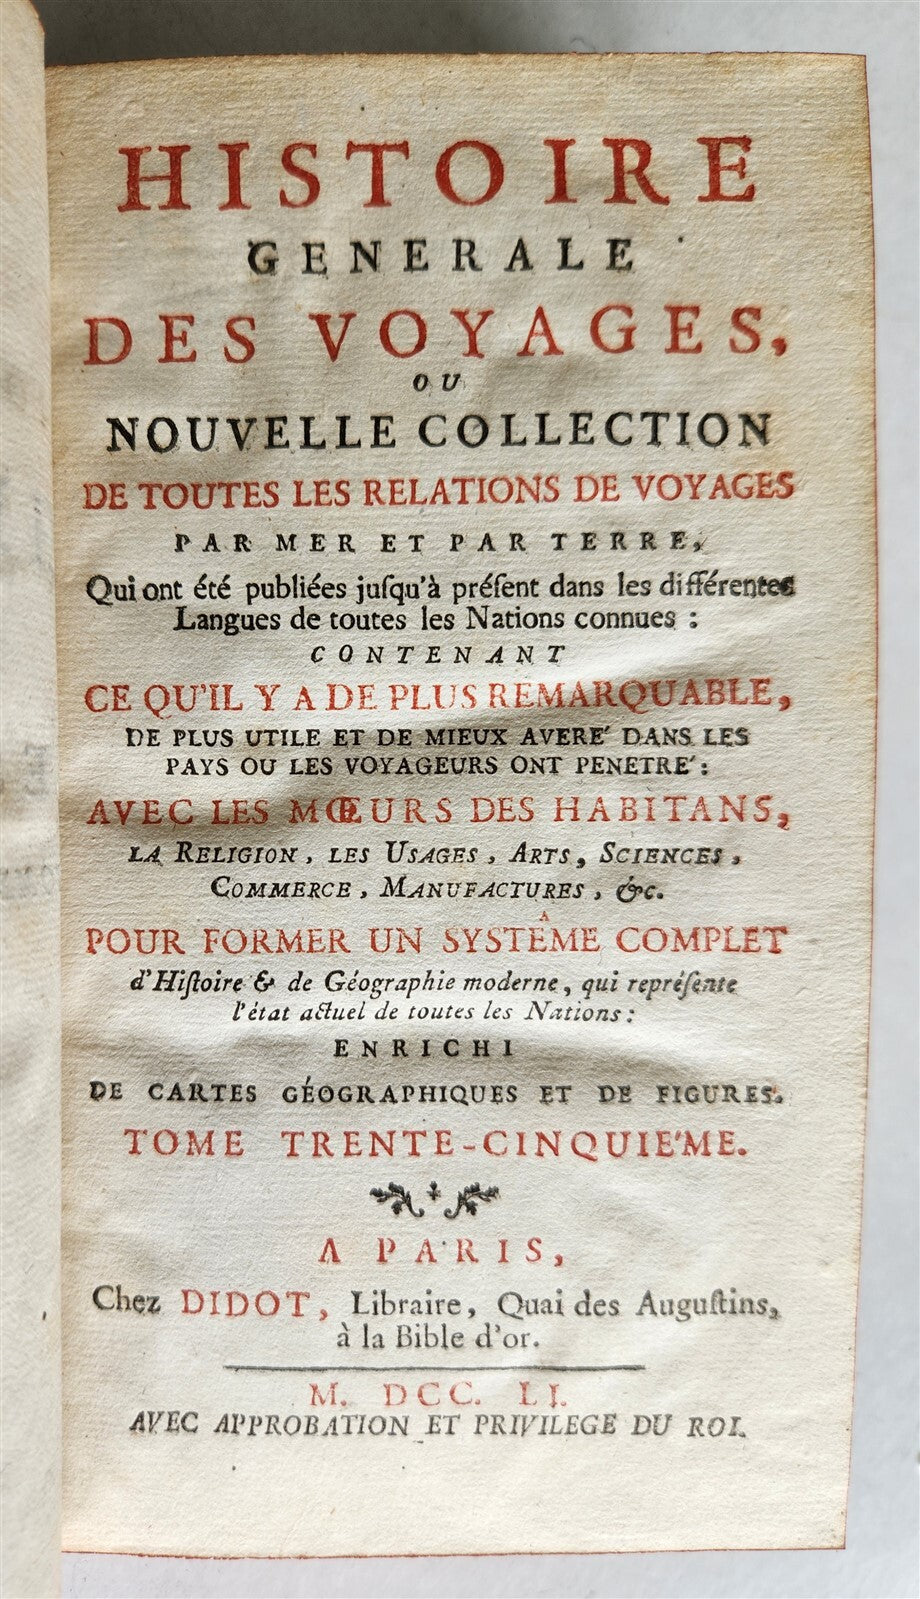 HISTOIRE
GENERALE
DES VOYAGES,
OU
NOUVELLE COLLECTION
DE TOUTES LES RELATIONS DE VOYAGES
PAR MER ET PAR TERRE,
Qui ont été publiées juſqu'à préſent dans les différentes
Langues de toutes les Nations connues :
CONTENANT
CE QU'IL Y A DE PLUS REMARQUABLE,
DE PLUS UTILE ET DE MIEUX AVERE´ DANS LES
PAYS OU LES VOYAGEURS ONT PENETRE´:
AVEC LES MŒURS DES HABITANS,
LA RELIGION, LES USAGES, ARTS, SCIENCES,
COMMERCE, MANUFACTURES, &c.
POUR FORMER UN SYSTÊME COMPLET
d'Hiſtoire & de Géographie moderne, qui repréſente
l'état actuel de toutes les Nations:
ENRICHI
DE CARTES GÉOGRAPHIQUES ET DE FIGURES.
TOME TRENTE-CINQUIE´ME.
A PARIS,
Chez DIDOT, Libraire, Quai des Auguſtins,
à la Bible d'or.
M. DCC. LI.
AVEC APPROBATION ET PRIVILEGE DU ROI.